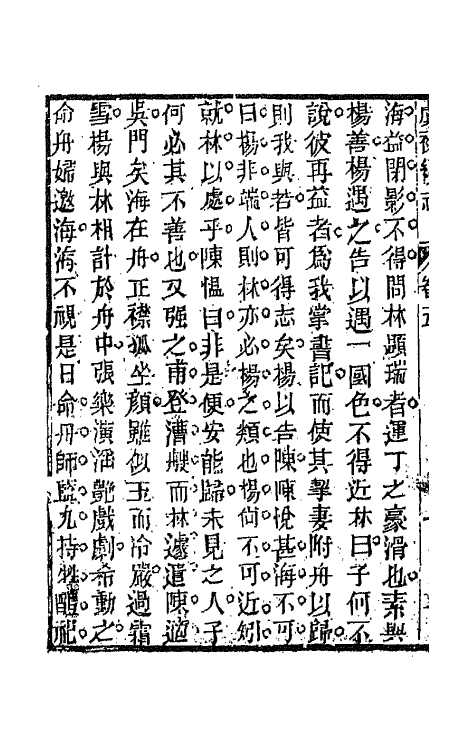 虞初新志 卷五
海益閉影不得問林顯瑞者運丁之豪滑也素與
楊善楊遇之告以遇一國色不得近林曰子何不
說彼再益者為我掌書記而使其挈妻附舟以歸
則我與若皆可得志矣楊以告陳陳悅甚海不可
曰楊非端人則林亦必楊之類也楊尙不可近矧
就林以處乎陳慍曰非是便安能歸未見之人子
何必其不善也又强之甫登漕艘而林遽遣陳適
吳門矣海在舟正襟孤坐顏雖似玉而冷嚴過霜
雪楊與林相計於舟中張樂演滛艷戲劇希動之
命舟婦邀海海不視是日命舟師監九持牲醴祀